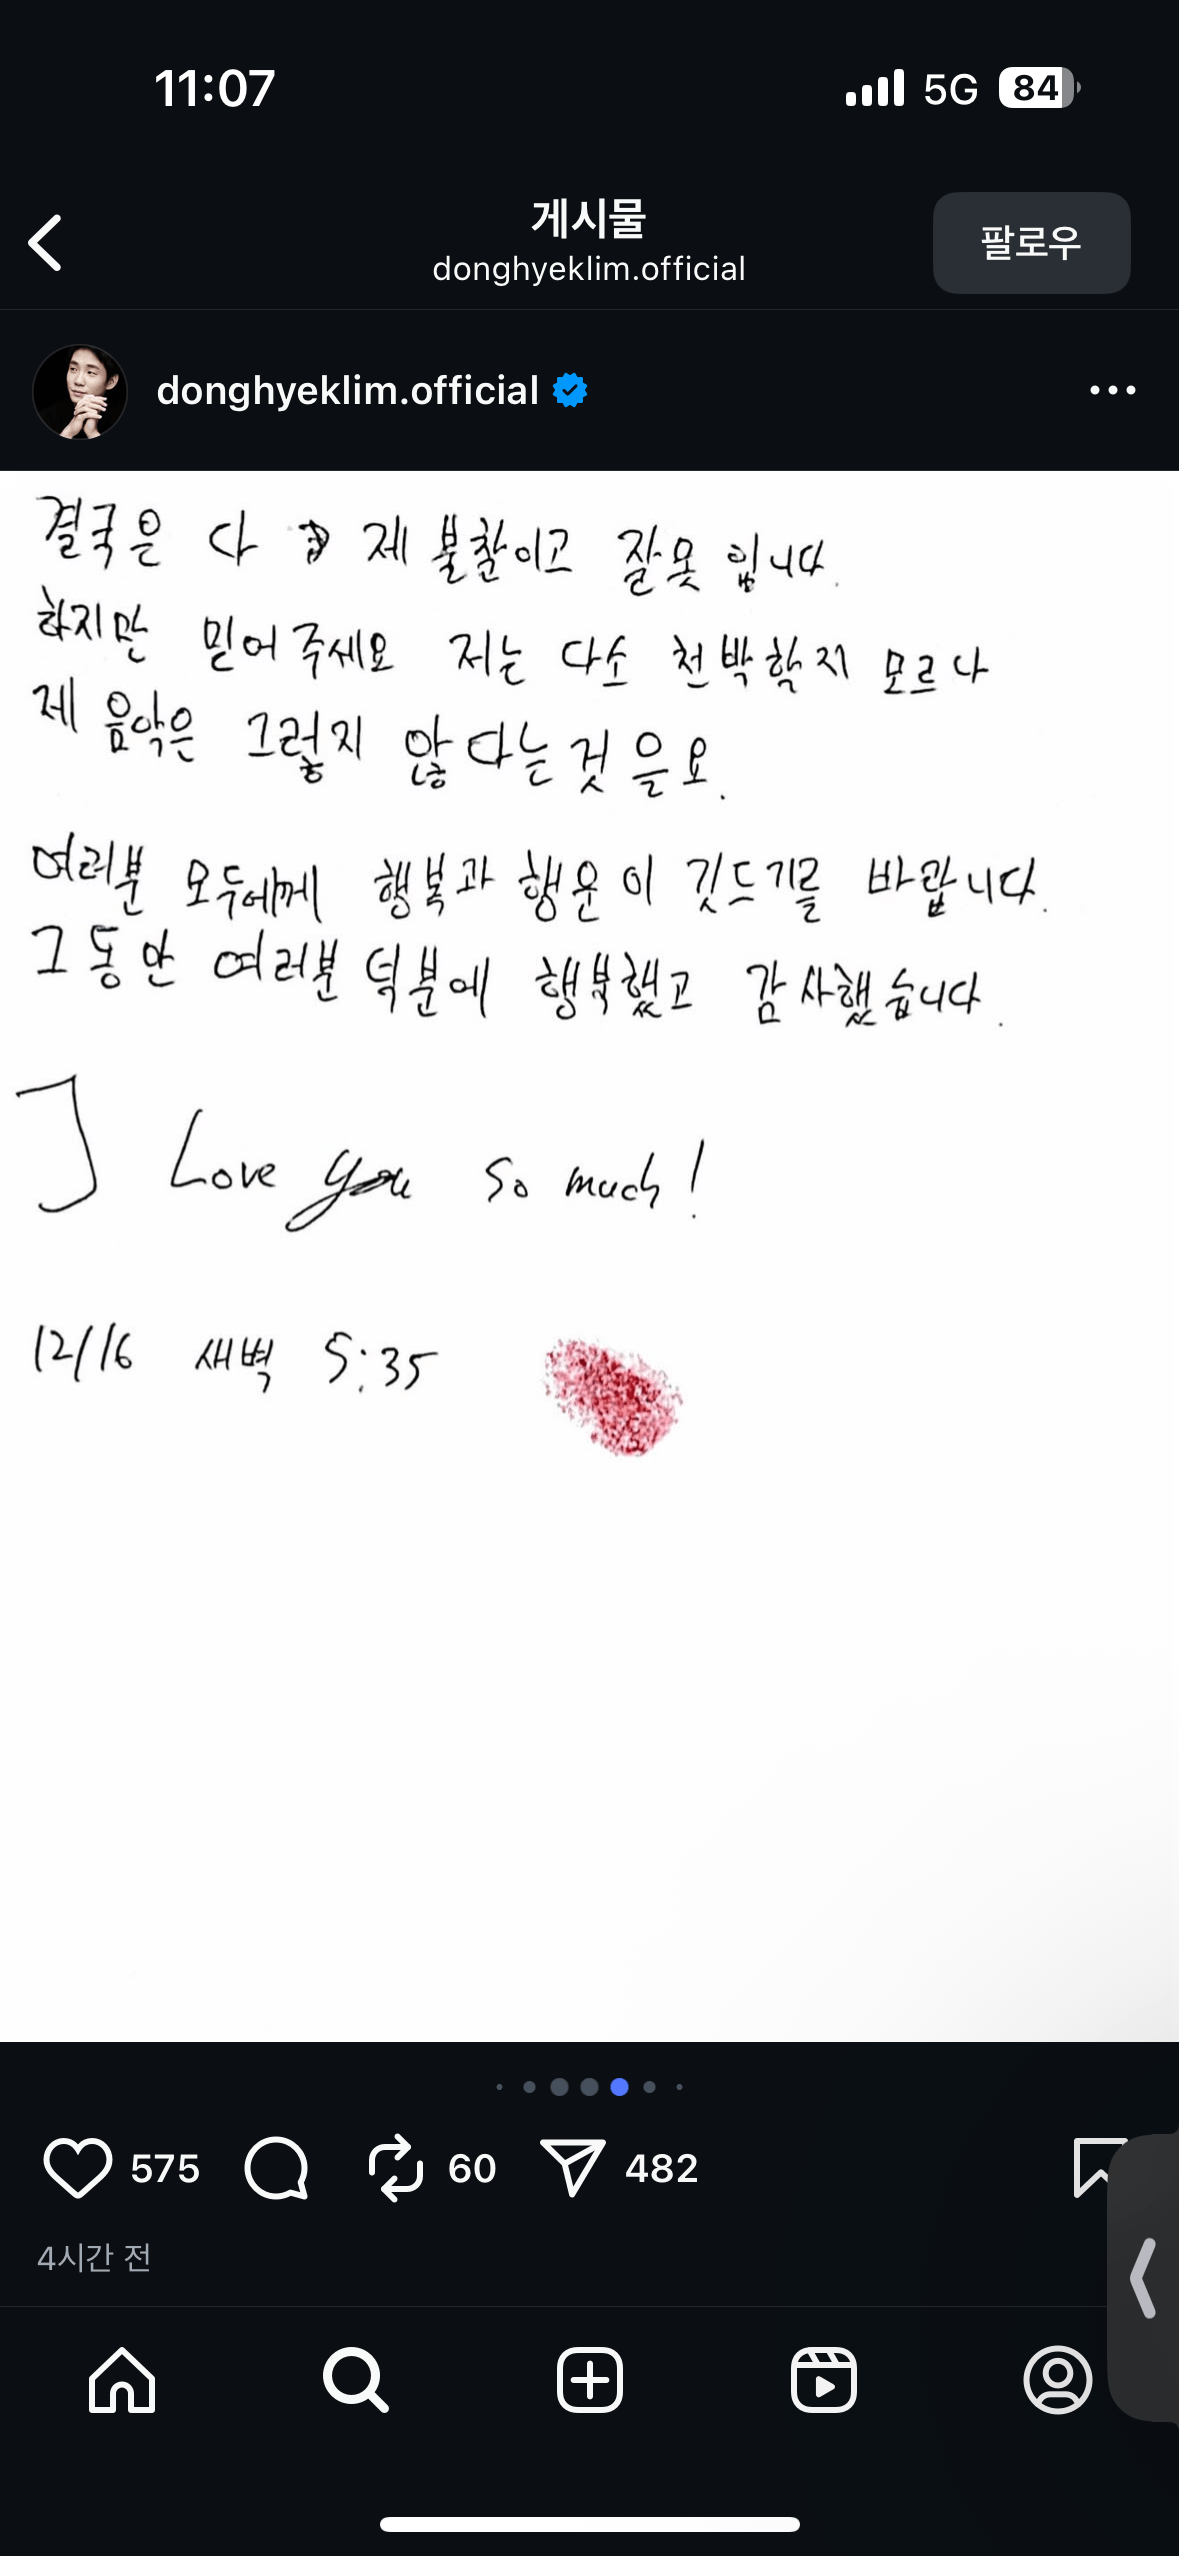 11:07
5G 84
게시물
donghyeklim.official
팔로우
donghyeklim.official
결국은 다 제 불찰이고 잘못 입니다.
하지만 믿어 주세요 저는 다소 천박할지 모르나
제 음악은 그렇지 않다는 것 을요.
여러분 모두에께 행복과 행운이 깃드기를 바랍니다.
그동안 여러분 덕분에 행복했고 감사했습니다.
I Love you so much!
12/16 새벽 5:35
575 60 482
4시간 전